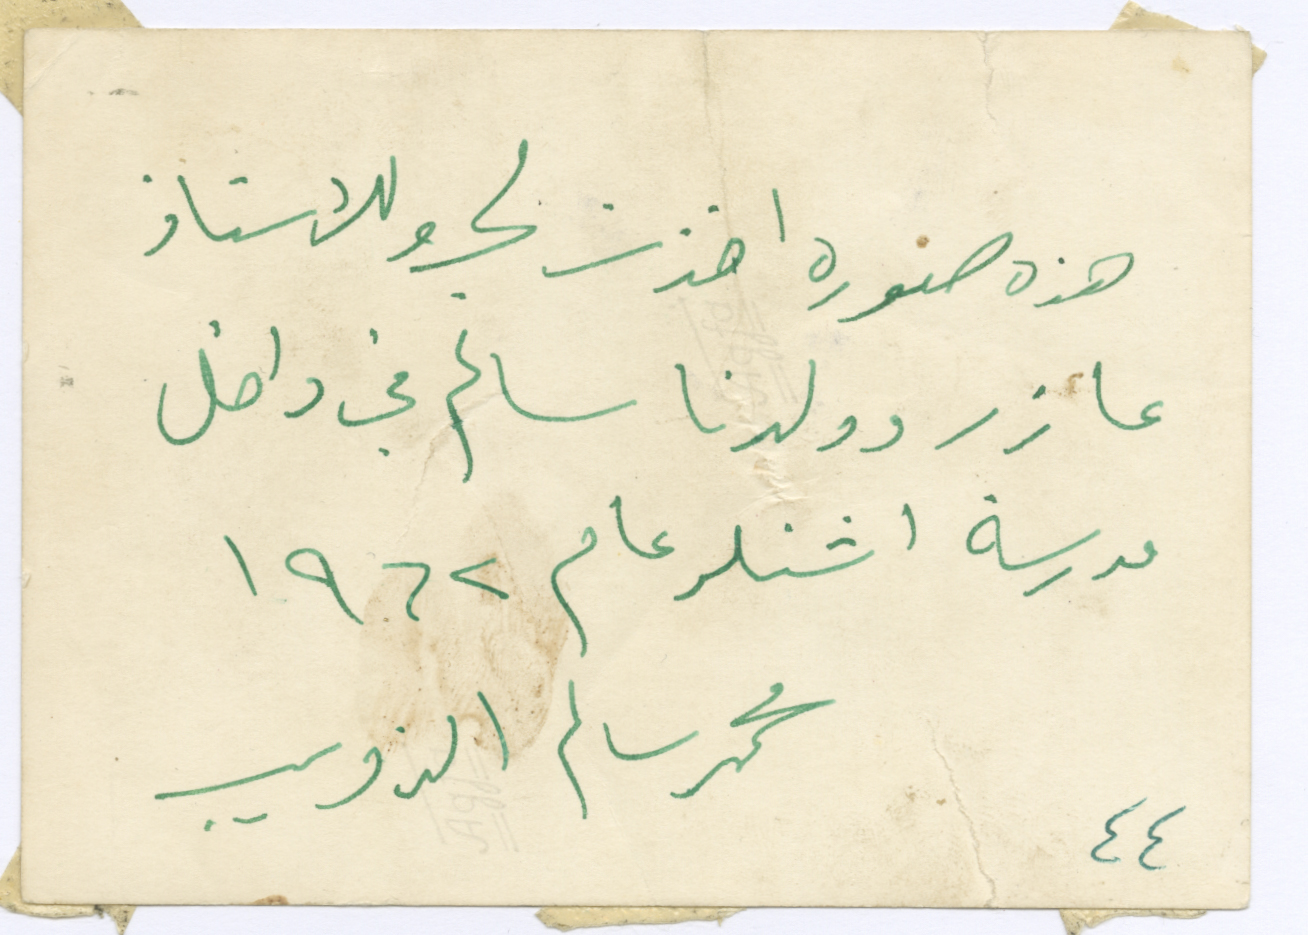 هذه صوره اخذت لي وللاستاذ
عازر وولدنا سالم في داخل
مدرسة اشنلر عام ١٩٦٢
محمد سالم الذويب
٤٤
Agfa
Agfa